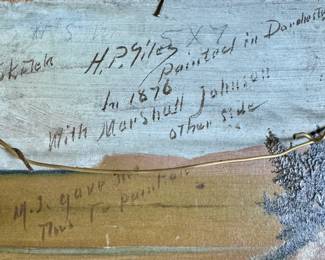 Sketch
H.P. Giles
Painted in Dorchester
In 1876
With Marshall Johnson
other side
M.J. gave me
This To paint on